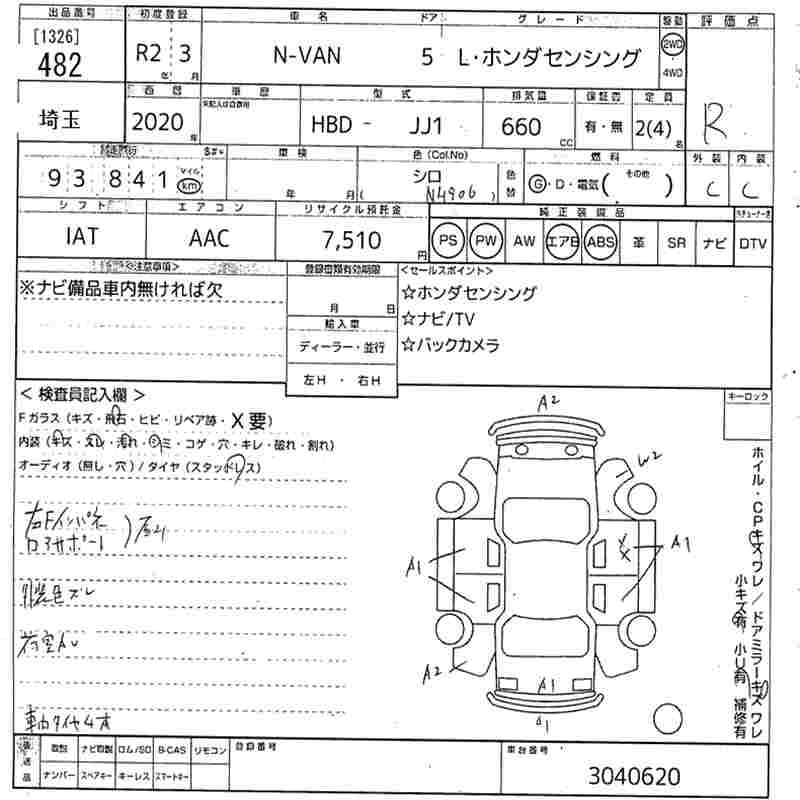 出品番号 初度登録 車名 ドア グレード 駆動 評価点
[1326]
482 R2年 3月 N-VAN 5 L・ホンダセンシング 2WD 4WD
R
埼玉 2020年 車歴 型式 排気量 保証書 定員
HBD - JJ1 660 CC 有・無 2(4)名
車検 色(Col.No) 燃料 外装 内装
93,841 マイル km 年 月 シロ N4906 色替 G・D・電気(その他) C C
シフト エアコン リサイクル預託金 純正装備品
IAT AAC 7,510円 PS PW AW エアB ABS 革 SR ナビ DTV
注意事項> 登録書類有効期限 <セールスポイント>
※ナビ備品車内無ければ欠
月 日
☆ホンダセンシング
輸入車
☆ナビ/TV
ディーラー・並行
☆バックカメラ
左H・右H
<検査員記入欄>
キーロック
Fガラス(キズ・飛石・ヒビ・リペア跡・X要)
内装(キズ・スレ・汚れ・シミ・コゲ・穴・キレ・破れ・割れ)
オーディオ(無し・穴)/タイヤ(スタッドレス)
A2
W2
右Fインパネ
ロアサポート
A1
A1
外装色ズレ
荷室スレ
A2
A1
A1
車内タイヤ4本
ホイル・CPキズワレ/ドアミラーキズワレ
小キズ有 小U有 補修有
後送品 取説 ナビ取説 ロム/SD B-CAS リモコン 登録番号 車台番号
ナンバー スペアキー キーレス スマートキー
3040620